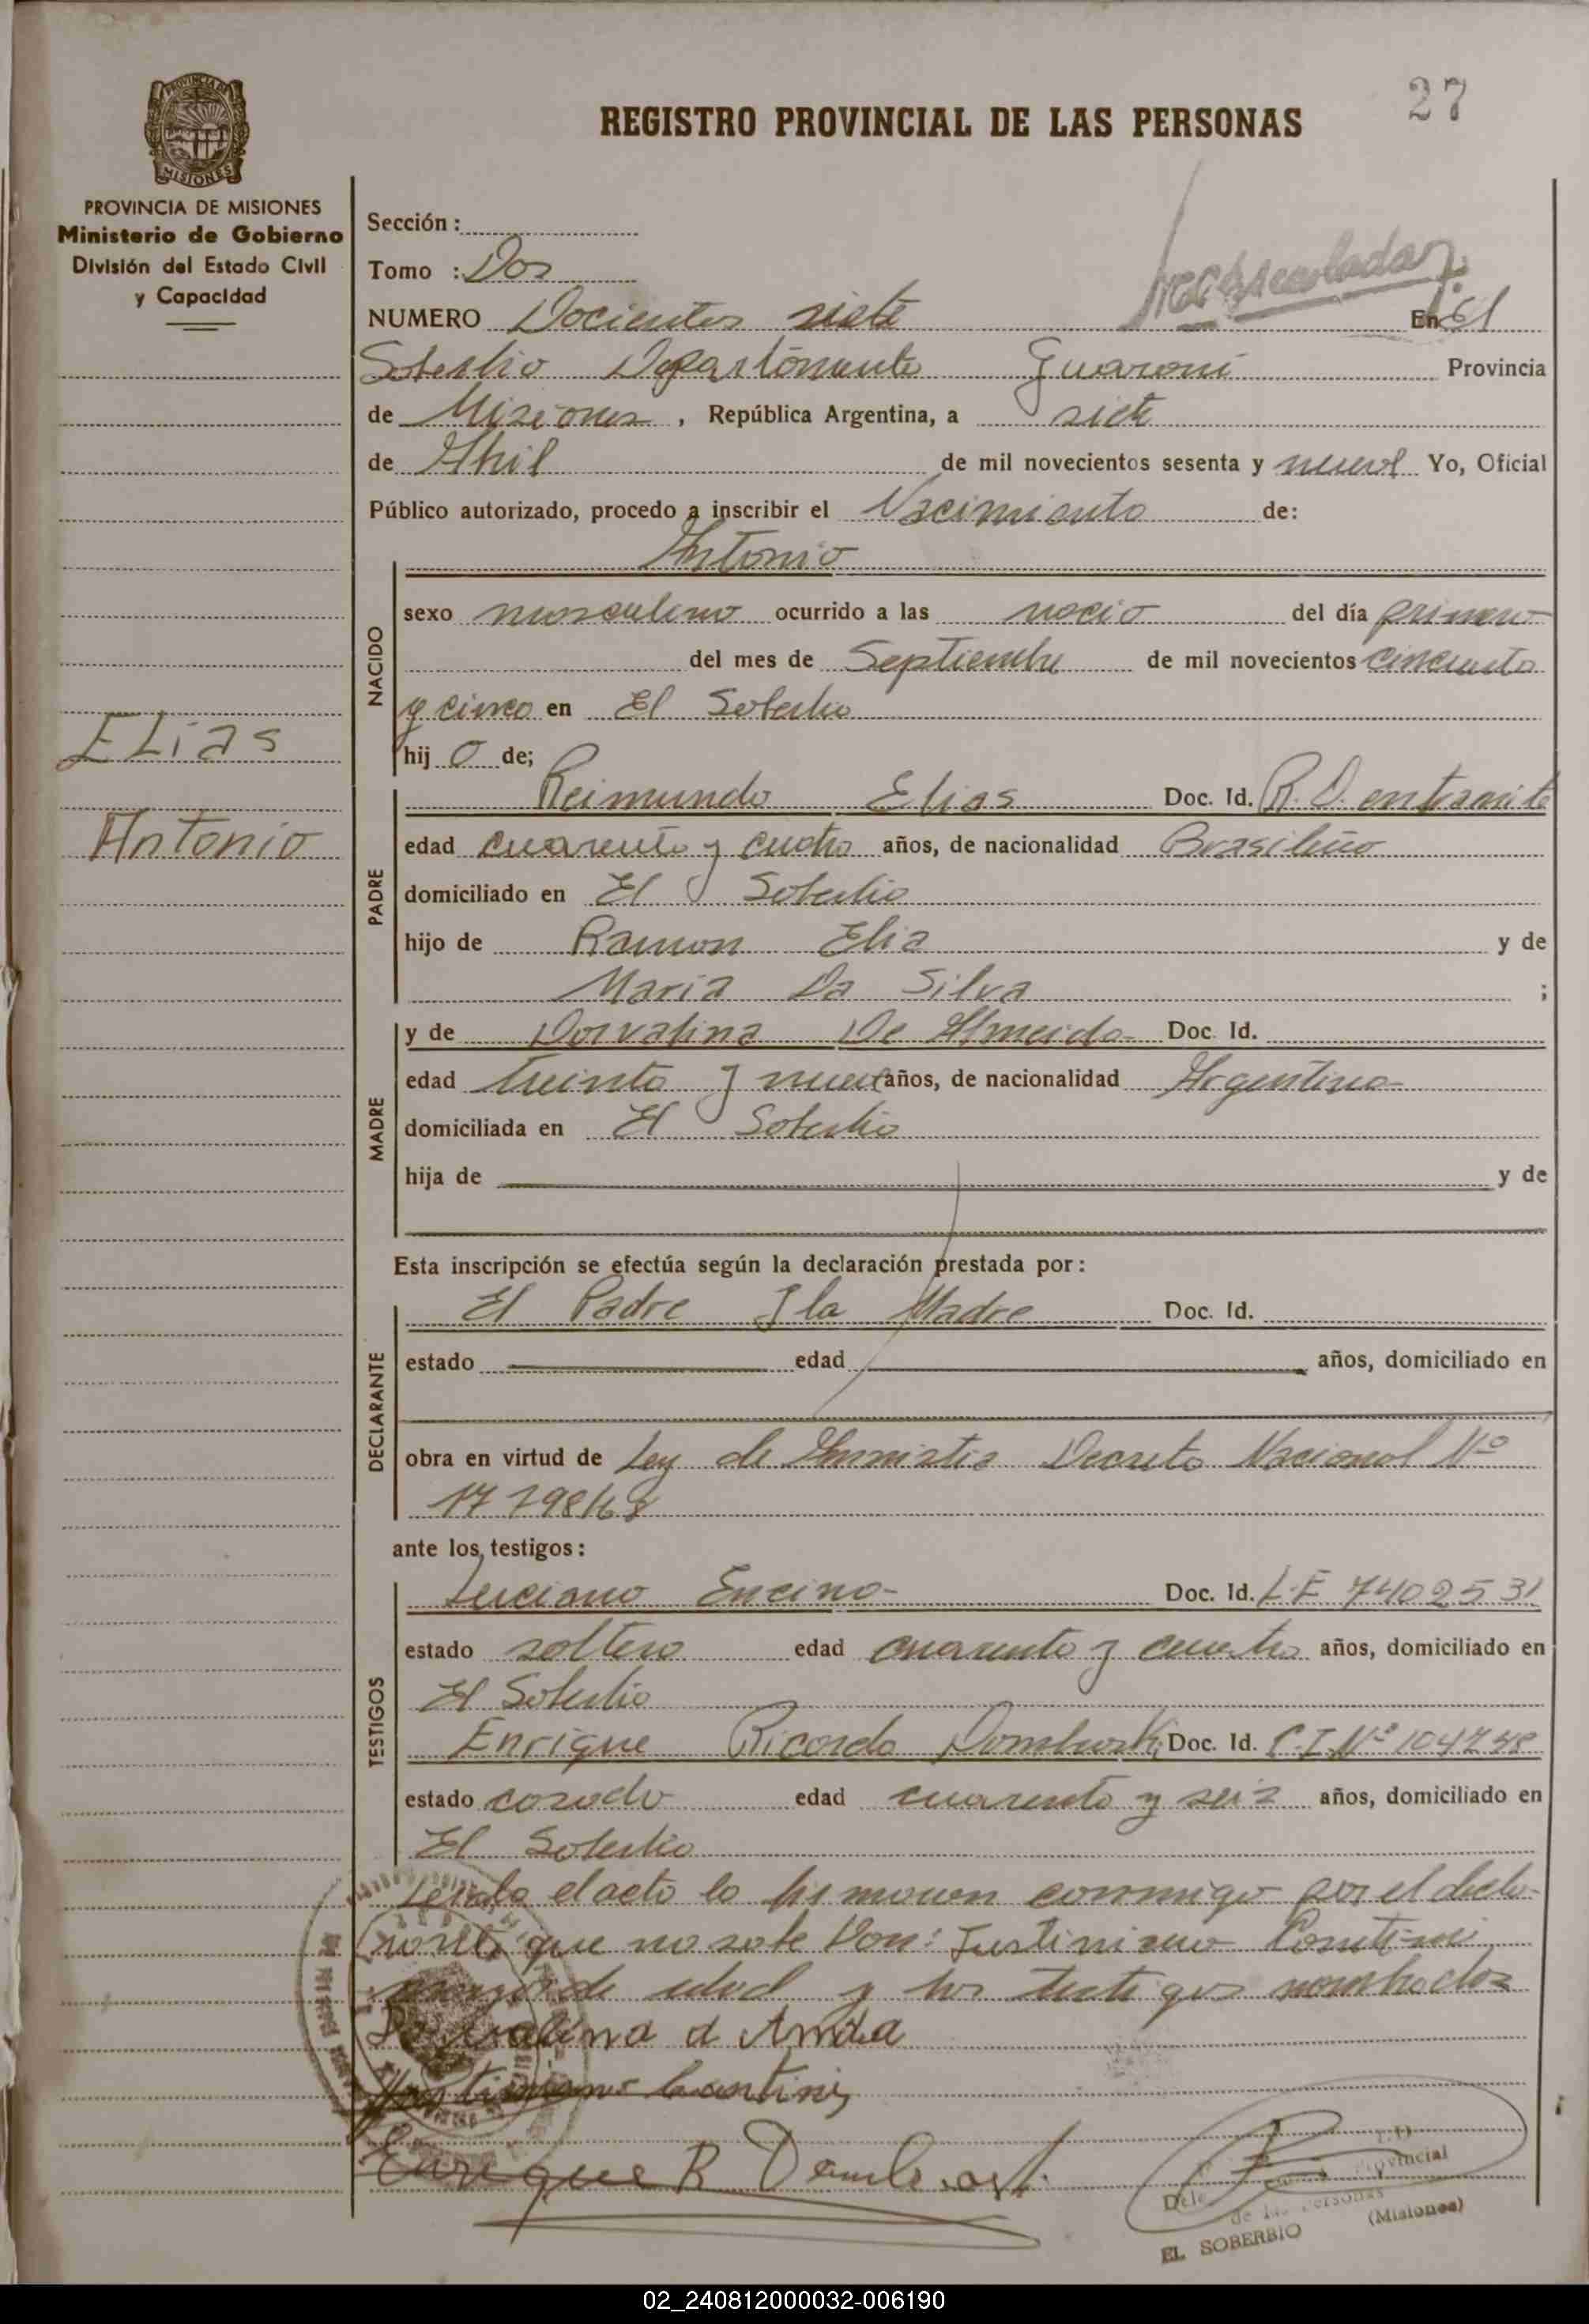 27
REGISTRO PROVINCIAL DE LAS PERSONAS
PROVINCIA DE MISIONES
MISIONES
PROVINCIA DE MISIONES
Ministerio de Gobierno
División del Estado Civil
y Capacidad
Elias
Antonio
Sección :
Tomo : Dos
NUMERO Docientos siete En El
Soberbio Departamento Guarani Provincia
de Misiones , República Argentina, a siete
de Abril de mil novecientos sesenta y nueve Yo, Oficial
Público autorizado, procedo a inscribir el Nacimiento de:
NACIDO
Antonio
sexo masculino ocurrido a las nocio del día primero
del mes de Septiembre de mil novecientos cincuenta
y cinco en El Soberbio
hij o de;
PADRE
Reimundo Elias Doc. Id. R.D. entramite
edad cuarenta y cuatro años, de nacionalidad Brasileño
domiciliado en El Soberbio
hijo de Ramon Elia y de
Maria Da Silva ;
MADRE
y de Dorvalina De Almeida Doc. Id.
edad treinta y nueve años, de nacionalidad Argentina
domiciliada en El Soberbio
hija de y de
Esta inscripción se efectúa según la declaración prestada por :
DECLARANTE
El Padre y la Madre Doc. Id.
estado edad años, domiciliado en
obra en virtud de Ley de Amnistia Decreto Nacional Nº
17798/68
ante los testigos :
TESTIGOS
Luciano Encina Doc. Id. L.E 7402531
estado soltero edad cuarenta y cuatro años, domiciliado en
El Soberbio
Enrique Ricardo Doc. Id. C.I.Nº 104748
estado casado edad cuarenta y seis años, domiciliado en
El Soberbio
Leida el acto la firmaron conmigo por el decla-
rante que no sabe Don: Justiniano
mayor de edad y los testigos nombrados
Dorvalina d Amda
Enrique R
Provincial
de las Personas
EL SOBERBIO (Misiones)
02_240812000032-006190